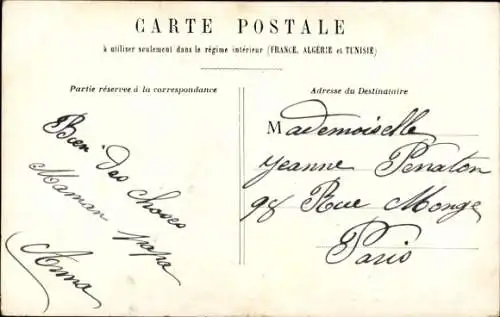 CARTE POSTALE
à utiliser seulement dans le régime intérieur (FRANCE, ALGÉRIE et TUNISIE)
Partie réservée à la correspondance
Bien des choses
Maman papa
Anna
Adresse du Destinataire
Mademoiselle
Jeanne Penaton
98 Rue Monge
Paris